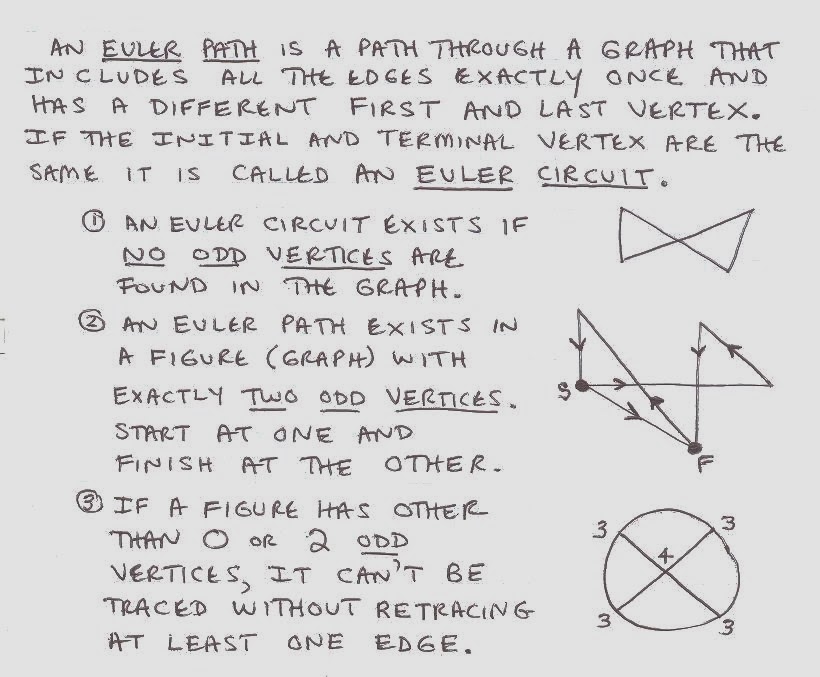 AN EULER PATH IS A PATH THROUGH A GRAPH THAT
INCLUDES ALL THE EDGES EXACTLY ONCE AND
HAS A DIFFERENT FIRST AND LAST VERTEX.
IF THE INITIAL AND TERMINAL VERTEX ARE THE
SAME IT IS CALLED AN EULER CIRCUIT.
① AN EULER CIRCUIT EXISTS IF
NO ODD VERTICES ARE
FOUND IN THE GRAPH.
② AN EULER PATH EXISTS IN
A FIGURE (GRAPH) WITH
EXACTLY TWO ODD VERTICES.
START AT ONE AND
FINISH AT THE OTHER.
S
F
③ IF A FIGURE HAS OTHER
THAN 0 OR 2 ODD
VERTICES, IT CAN'T BE
TRACED WITHOUT RETRACING
AT LEAST ONE EDGE.
3 3
4
3 3